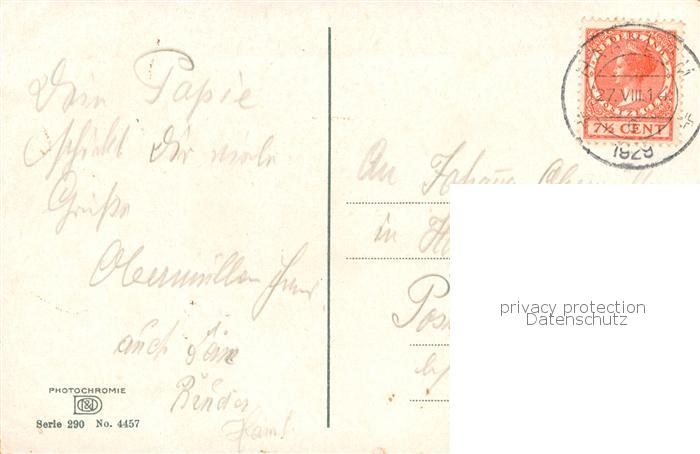 Dein Papie
schickt Dir viele
Grüße
Obermüller
auch Dein
Bruder
PHOTOCHROMIE
Serie 290 No. 4457
NEDERLAND
7½ CENT
27.VIII.1
1929
An Johann
in
privacy protection
Datenschutz